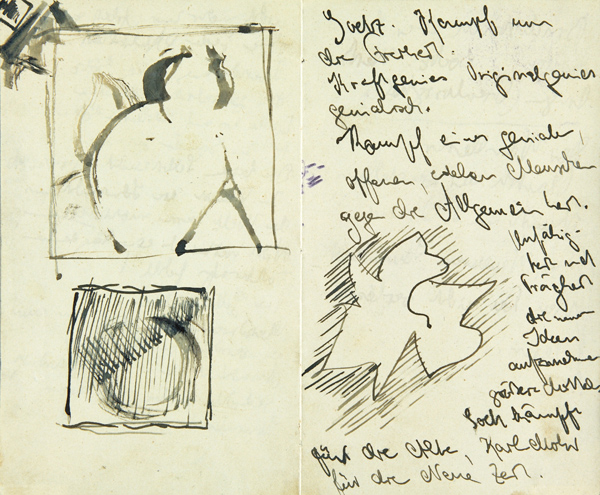 Goetz. Kampf um
die Freiheit.
Kraftgenies Originalgenies
genialisch.
Kampf eines genialen,
offenen, edlen Menschen
gegen die Allgemeinheit.
Unfähig-
keit und
Trägheit
die neuen
Ideen
aufzunehmen
Goetz kämpft
für die Alte, Karl Mohr
für die Neue Zeit.